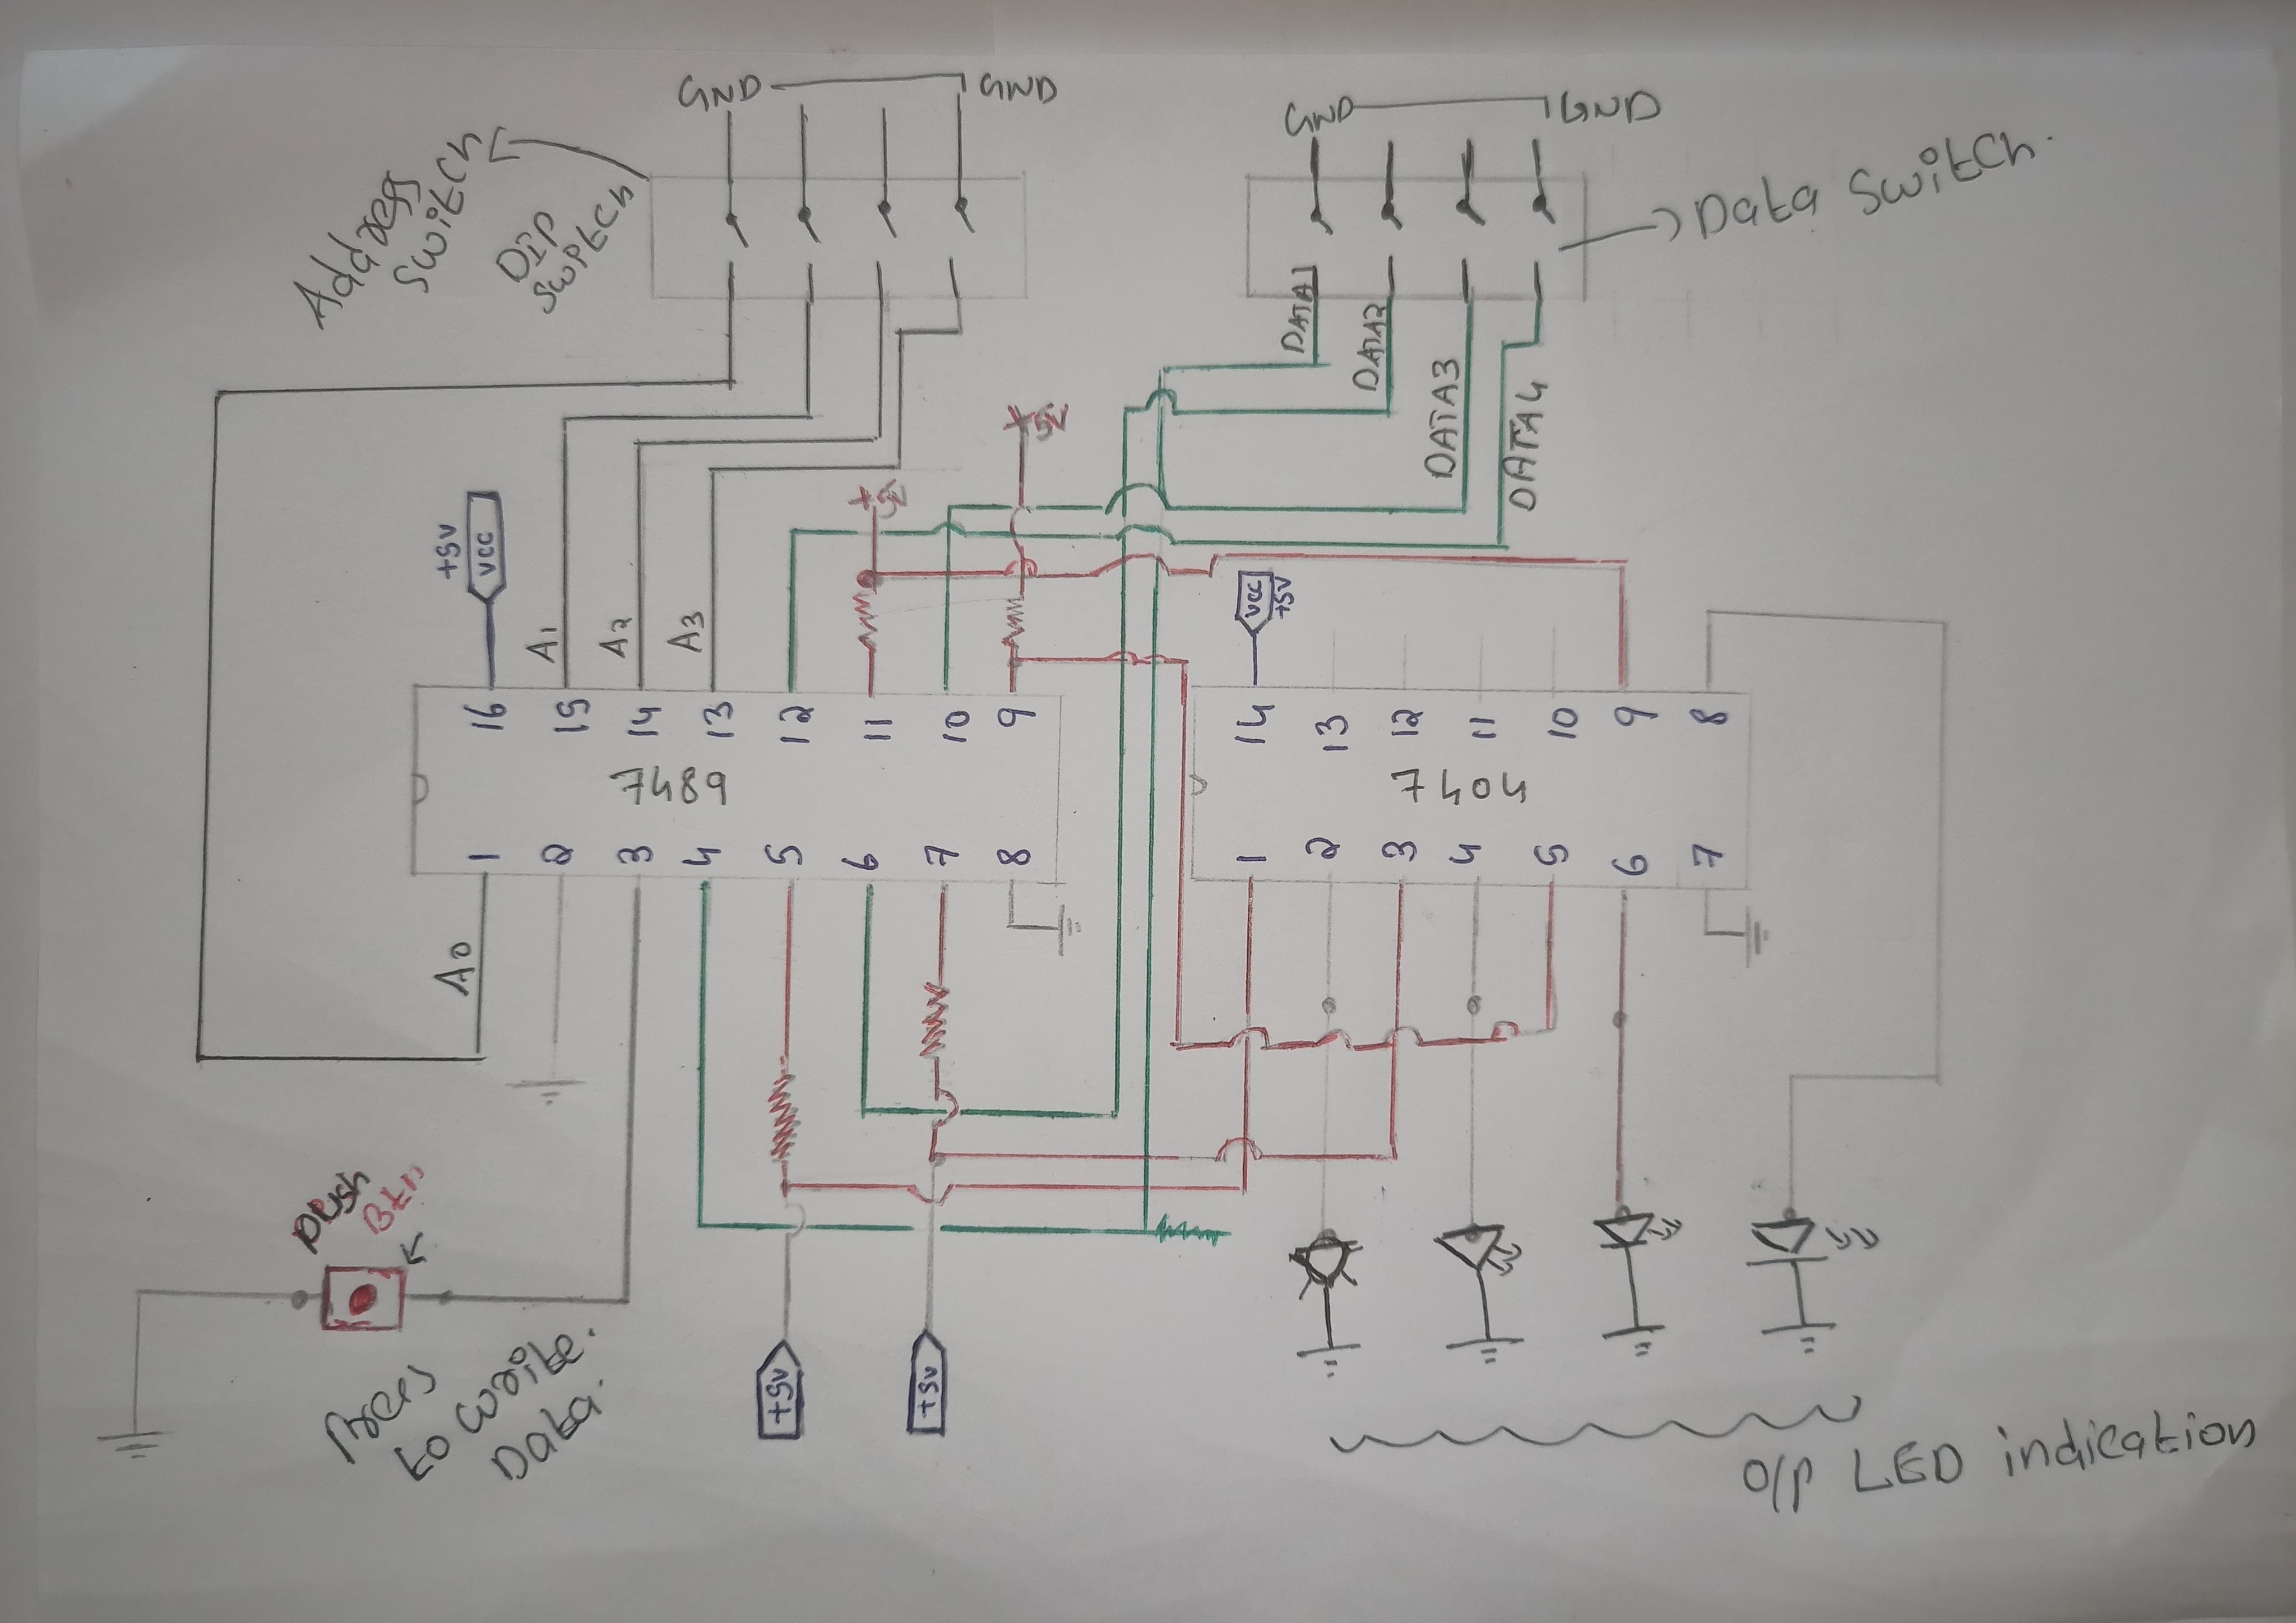 GND GND
GND GND
Address
Switch
DIP
Data Switch.
DATA1
DATA2
DATA3
DATA4
+5V
VCC
A1
A2
A3
VCC
+5V
16 15 14 13 12 11 10 9
7489
1 2 3 4 5 6 7 8
14 13 12 11 10 9 8
7404
1 2 3 4 5 6 7
A0
push
Btn
to write
Data.
+5V
+5V
O/P LED indication